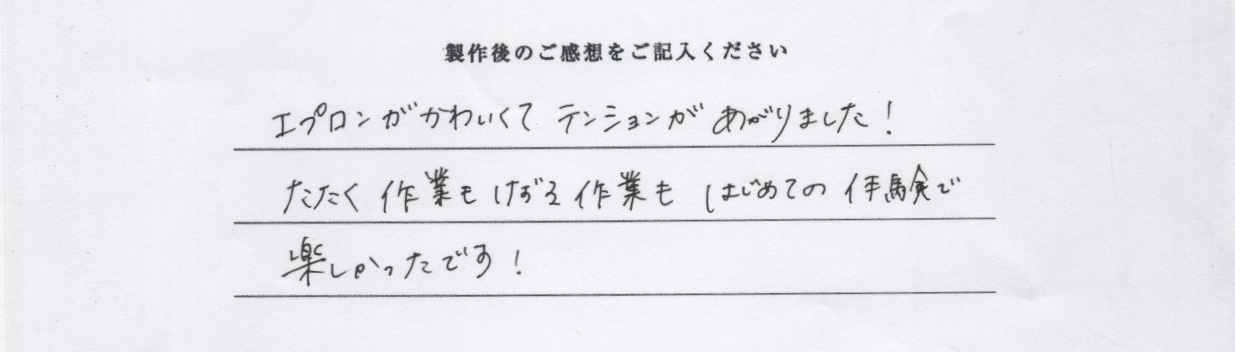 製作後のご感想をご記入ください
エプロンがかわいくて テンションが あがりました!
たたく 作業も けずる 作業も はじめての 体験で
楽しかったです!